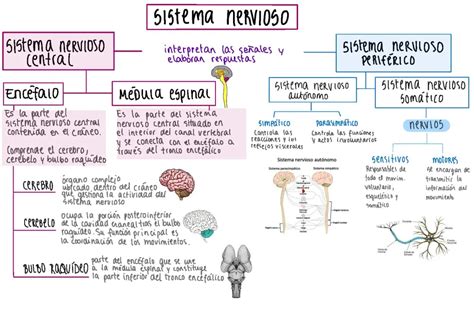 SISTEMA NERVIOSO
SISTEMA NERVIOSO
CENTRAL
interpretan las señales y
elaboran respuestas
SISTEMA NERVIOSO
PERIFÉRICO
ENCÉFALO
MÉDULA ESPINAL
SISTEMA NERVIOSO
AUTÓNOMO
SISTEMA NERVIOSO
SOMÁTICO
Es la parte del
sistema nervioso central
contenida en el cráneo.
Comprende el cerebro,
cerebelo y bulbo raquídeo
Es la parte del sistema
nervioso central situado en
el interior del canal vertebral
y se conecta con el encéfalo a
través del tronco encefálico
SIMPÁTICO
Controla las
y los
reflejos viscerales
PARASIMPÁTICO
Controla las funciones
y actos involuntarios
NERVIOS
SENSITIVOS
Responsables de
todo el movim.
voluntario,
esquelética y
somático
MOTORES
Se encargan de
transmitir la
información del
movimiento
Sistema nervioso autónomo
CEREBRO
órgano complejo
ubicado dentro del cráneo
que gestiona la actividad del
sistema nervioso
CEREBELO
Ocupa la porción posteroinferior
de la cavidad craneal tras el bulbo
raquídeo. Su función principal es
la coordinación de los movimientos.
BULBO RAQUÍDEO
parte del encéfalo que se une
a la médula espinal y constituye
la parte inferior del tronco encefálico